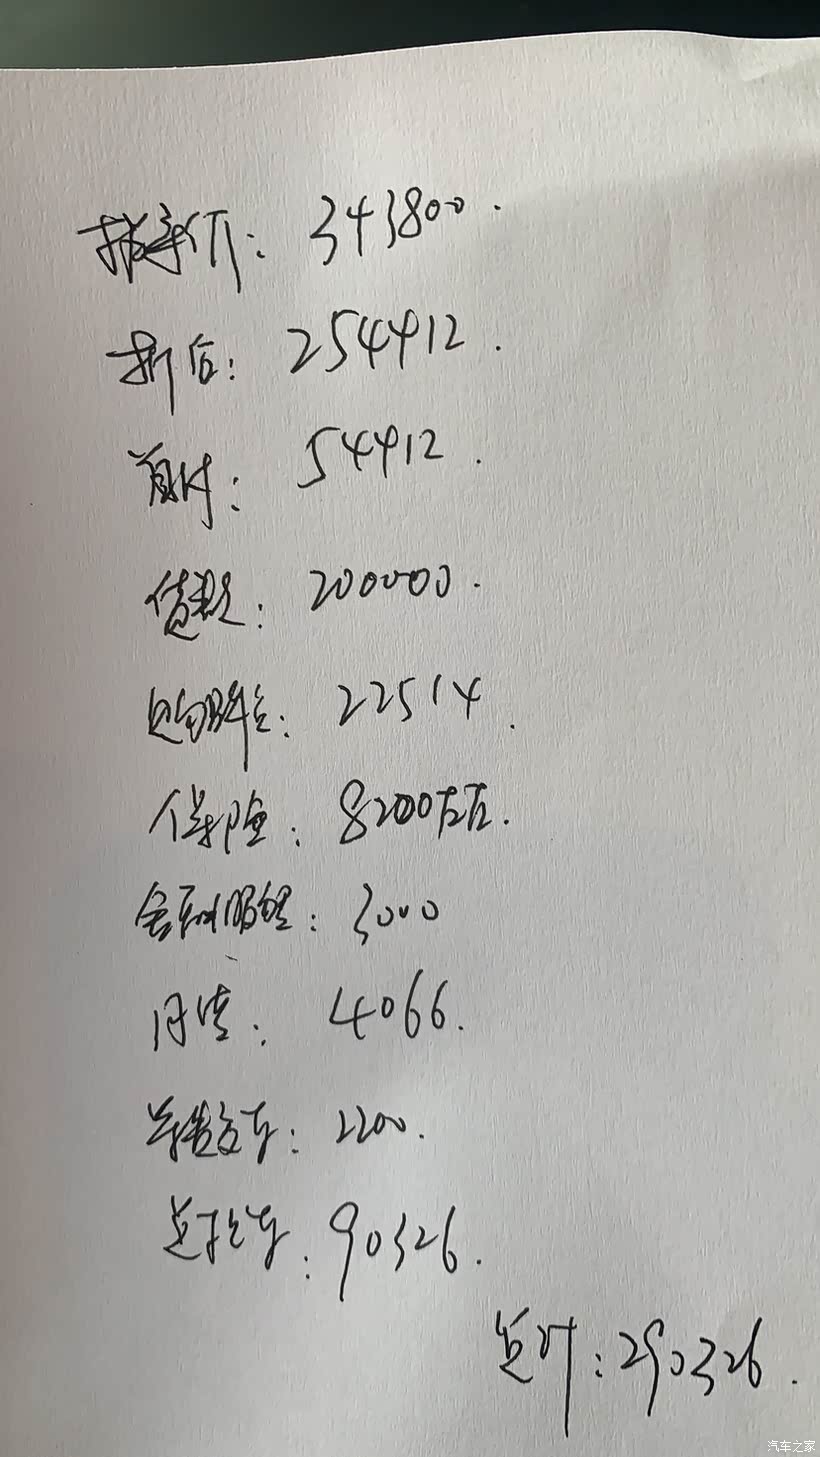 指导价：343800.
折后：254412.
首付：54412.
贷款：200000.
购置税：22514.
保险：8200左右.
金融服务：3000
月供：4066.
2200.
总提车：90326.
总计：290326.
汽车之家